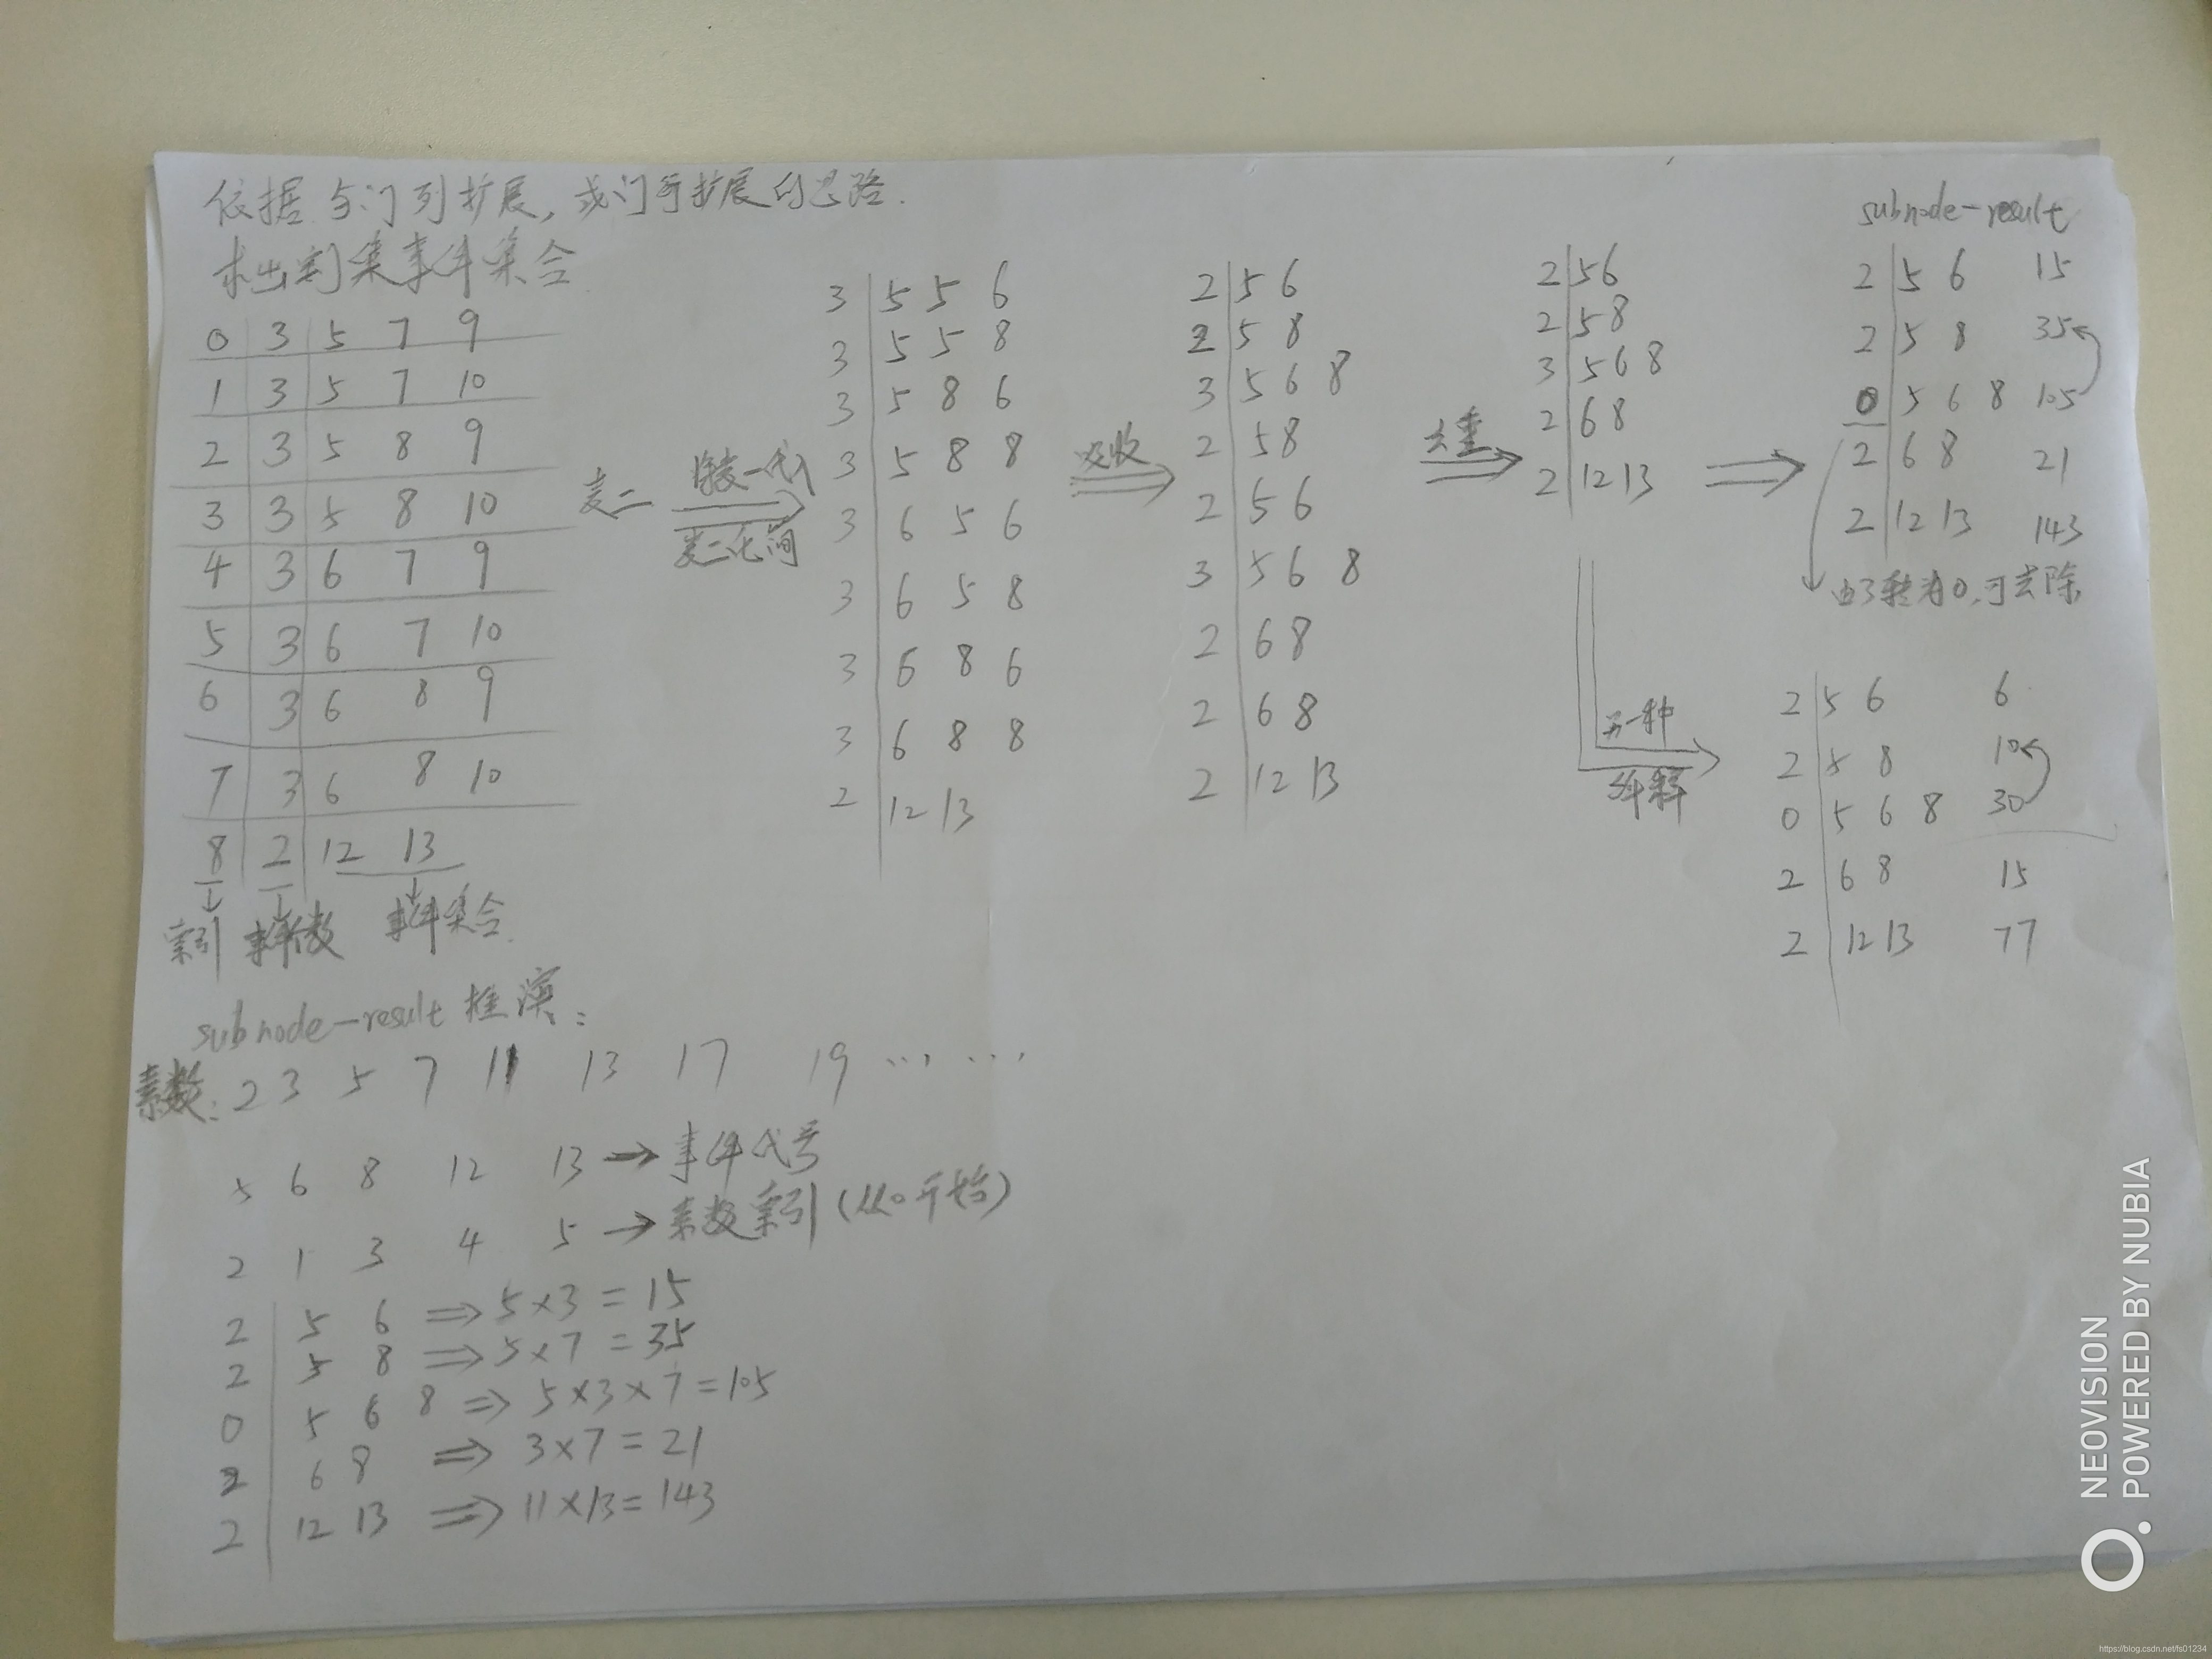 依据与门列扩展,或门行扩展的思路.
求出割集事件集合
0 3 5 7 9
1 3 5 7 10
2 3 5 8 9
3 3 5 8 10
4 3 6 7 9
5 3 6 7 10
6 3 6 8 9
7 3 6 8 10
8 2 12 13
索引 事件数 事件集合.
表二
表二
3 5 5 6
3 5 5 8
3 5 8 6
3 5 8 8
3 6 5 6
3 6 5 8
3 6 8 6
3 6 8 8
2 12 13
吸收
2 5 6
2 5 8
3 5 6 8
2 5 8
2 5 6
3 5 6 8
2 6 8
2 6 8
2 12 13
去重
2 5 6
2 5 8
3 5 6 8
2 6 8
2 12 13
subnode-result
2 5 6 15
2 5 8 35
0 5 6 8 105
2 6 8 21
2 12 13 143
由3转为0,可去除
另一种
解释
2 5 6 6
2 5 8 10
0 5 6 8 30
2 6 8 15
2 12 13 77
subnode-result 推演:
素数: 2 3 5 7 11 13 17 19 ... ...
5 6 8 12 13 → 事件代号
2 1 3 4 5 → 素数索引(从0开始)
2 5 6 ⇒ 5×3=15
2 5 8 ⇒ 5×7=35
0 5 6 8 ⇒ 5×3×7=105
2 6 8 ⇒ 3×7=21
2 12 13 ⇒ 11×13=143
NEOVISION
POWERED BY NUBIA
https://blog.csdn.net/fs01234